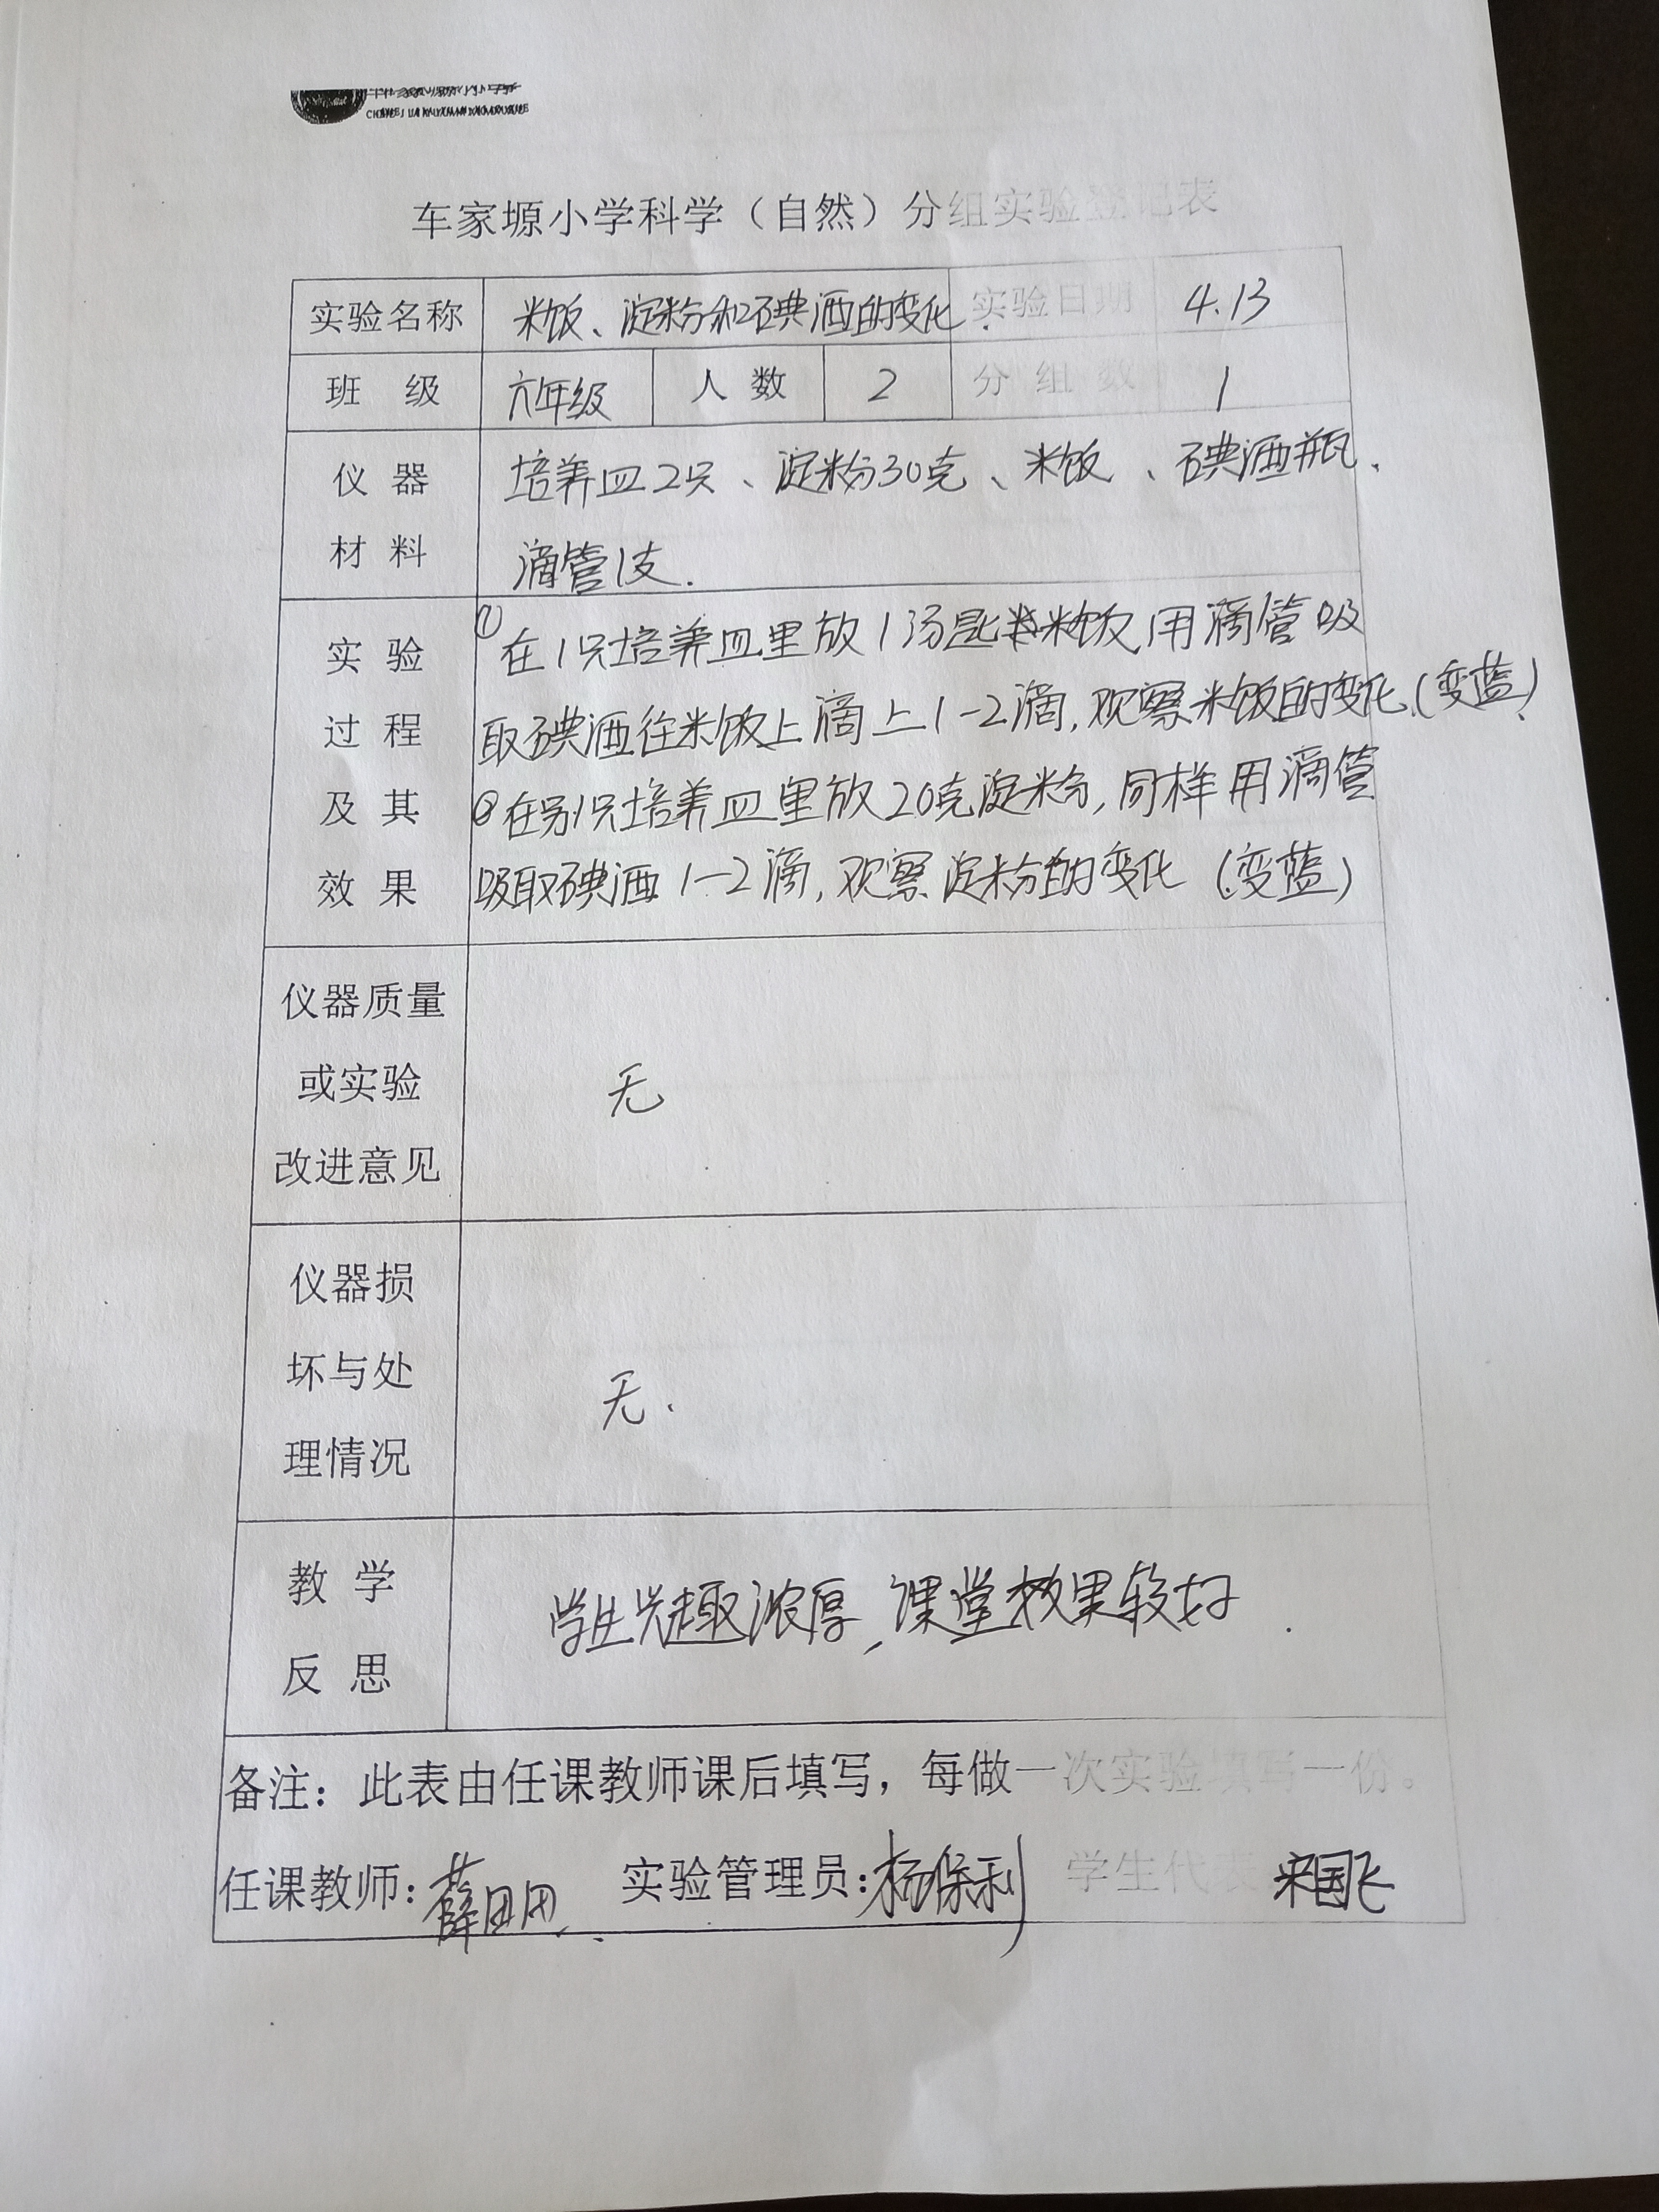 车家塬小学科学（自然）分组实验登记表
实验名称 米饭、淀粉和碘酒的变化. 实验日期 4.13
班 级 六年级 人 数 2 分 组 数 1
仪 器 培养皿2只、淀粉30克、米饭、碘酒瓶、
材 料 滴管1支.
①在1只培养皿里放1汤匙米饭,用滴管吸
实 验
取碘酒往米饭上滴上1-2滴,观察米饭的变化.(变蓝)
过 程
②在另1只培养皿里放20克淀粉,同样用滴管
及 其
吸取碘酒1-2滴,观察淀粉的变化(变蓝)
效 果
仪器质量
或实验 无
改进意见
仪器损
坏与处 无.
理情况
教 学 学生兴趣浓厚,课堂效果较好.
反 思
备注：此表由任课教师课后填写，每做一次实验填写一份。
任课教师: 薛田田 实验管理员: 杨保利 学生代表 宋国飞